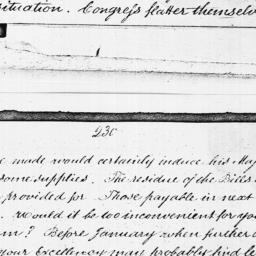 situation. Congress flatter themselv
230
made would certainly induce his Maj
some supplies. The residue of the Bills
provided for. Those payable in next
would it be too inconvenient for yo
m? Before January when further
your Excellency may probably find le